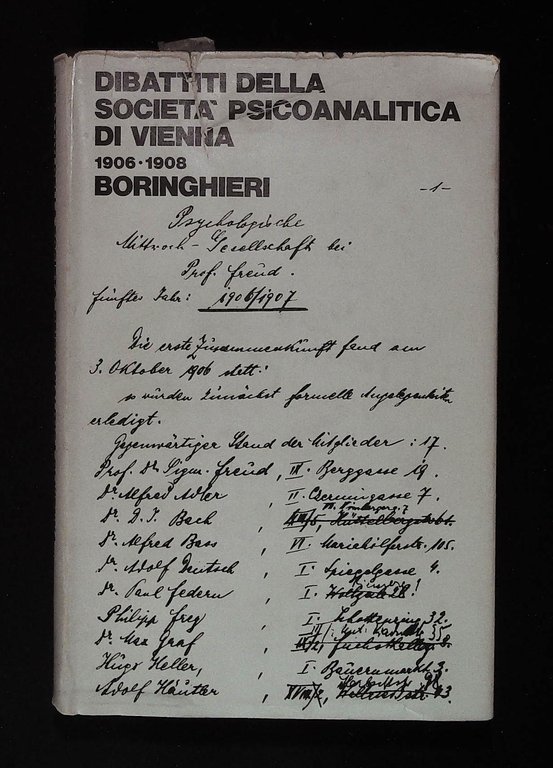 DIBATTITI DELLA
SOCIETA` PSICOANALITICA
DI VIENNA
1906·1908
BORINGHIERI
-1-
Psychologische
Mittwoch-Gesellschaft bei
Prof. Freud.
fünftes Jahr: 1906/1907
Die erste Zusammenkunft fand am
3. Oktober 1906 statt:
es wurden zunächst formelle Angelegenheiten
erledigt.
Gegenwärtiger Stand der Mitglieder: 17.
Prof. Dr. Sigm. Freud, IX. Berggasse 19.
Dr. Alfred Adler, II. Czerningasse 7.
Dr. D. J. Bach,
Dr. Alfred Bass, VI. Mariahilferstr. 105.
Dr. Adolf Deutsch, I. Spiegelgasse 4.
Dr. Paul Federn, I.
Philipp Frey, I. Schottenring 32.
Dr. Max Graf,
Hugo Heller, I. Bauernmarkt 3.
Adolf Häutler,